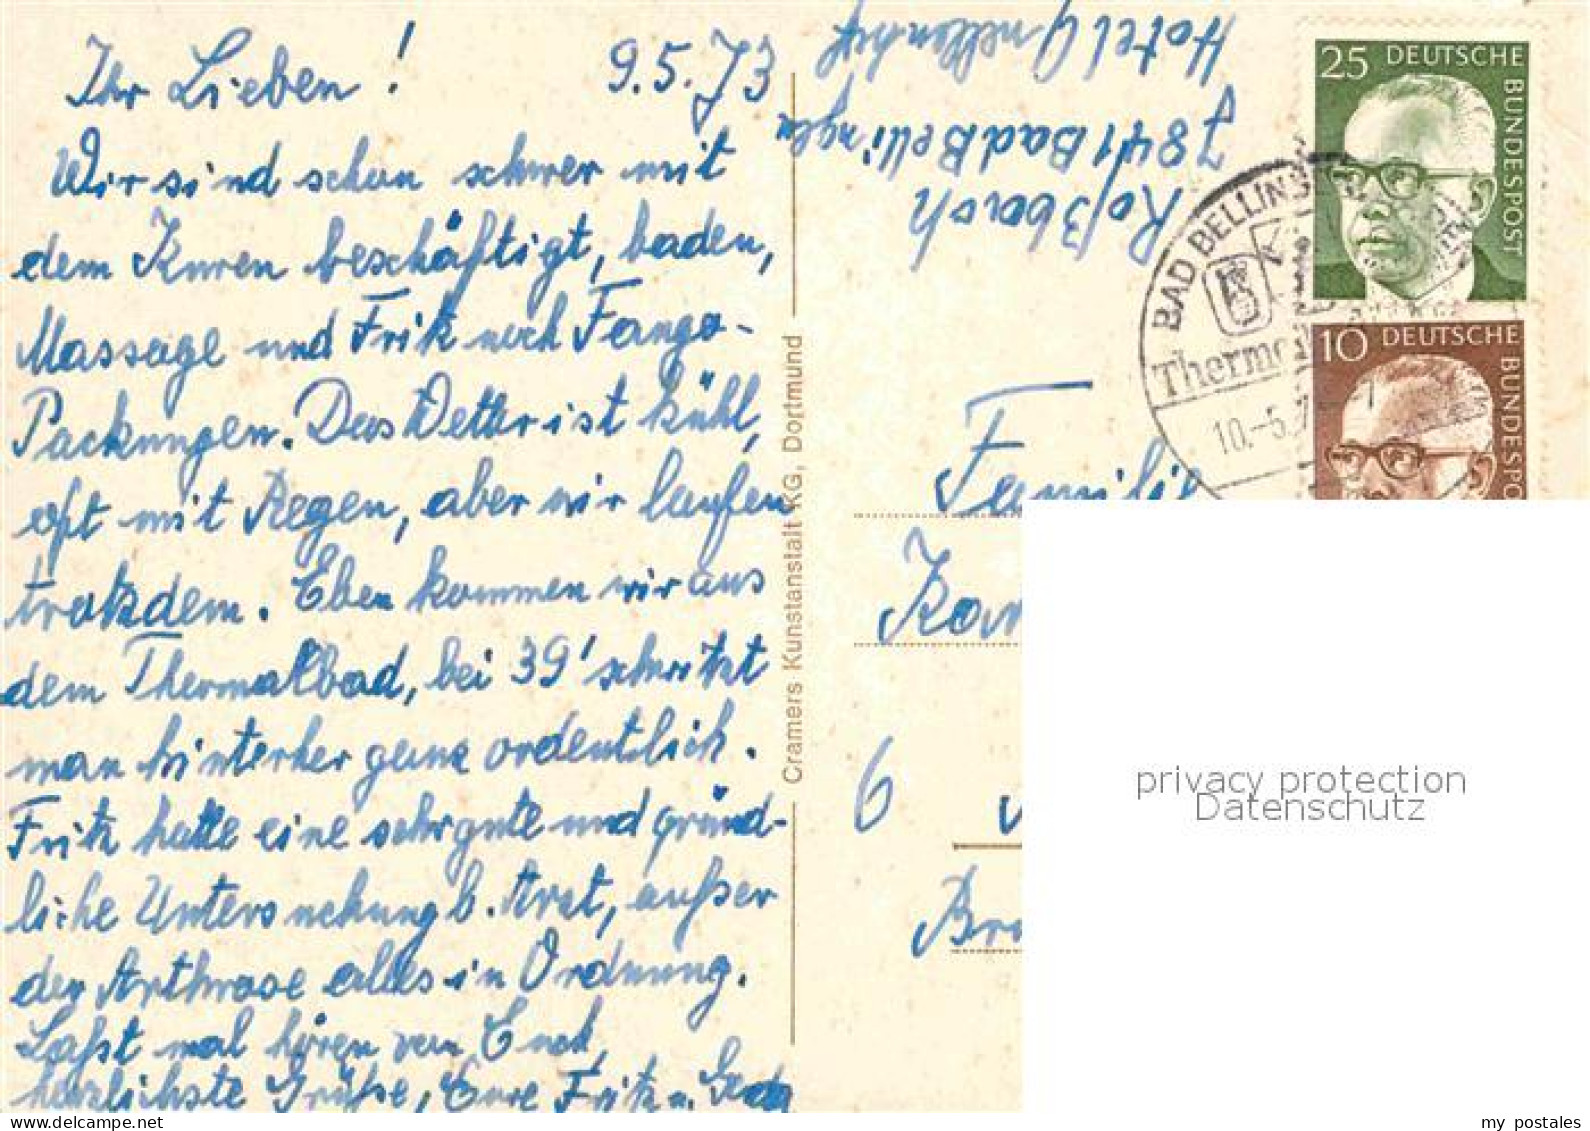 Ihr Lieben! 9.5.73
Wir sind schon schwer mit
dem Kuren beschäftigt, baden,
Massage und Fritz noch Fango-
Packungen. Das Wetter ist kühl,
oft mit Regen, aber wir laufen
trotzdem. Eben kommen wir aus
dem Thermalbad, bei 39' schwitzt
man hinterher ganz ordentlich.
Fritz hatte eine sehr gute und gründ-
liche Untersuchung b. Arzt, außer
der Arthrose alles in Ordnung.
Laßt mal hören von Euch,
herzlichste Grüße, Eure Fritz u.
Cramers Kunstanstalt KG, Dortmund
Roßbach
7841 Bad Bellingen
Hotel
BAD BELLING
Therma
10.-5.7
25 DEUTSCHE
BUNDESPOST
10 DEUTSCHE
BUNDESPO
Familie
6
privacy protection
Datenschutz
my postales